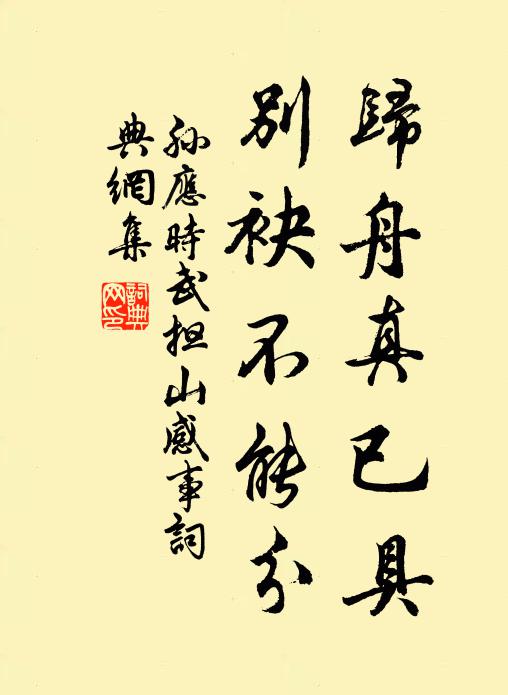 歸舟真已具
別袂不能分
孫應時武担山感事詞
典網集
詞典網印